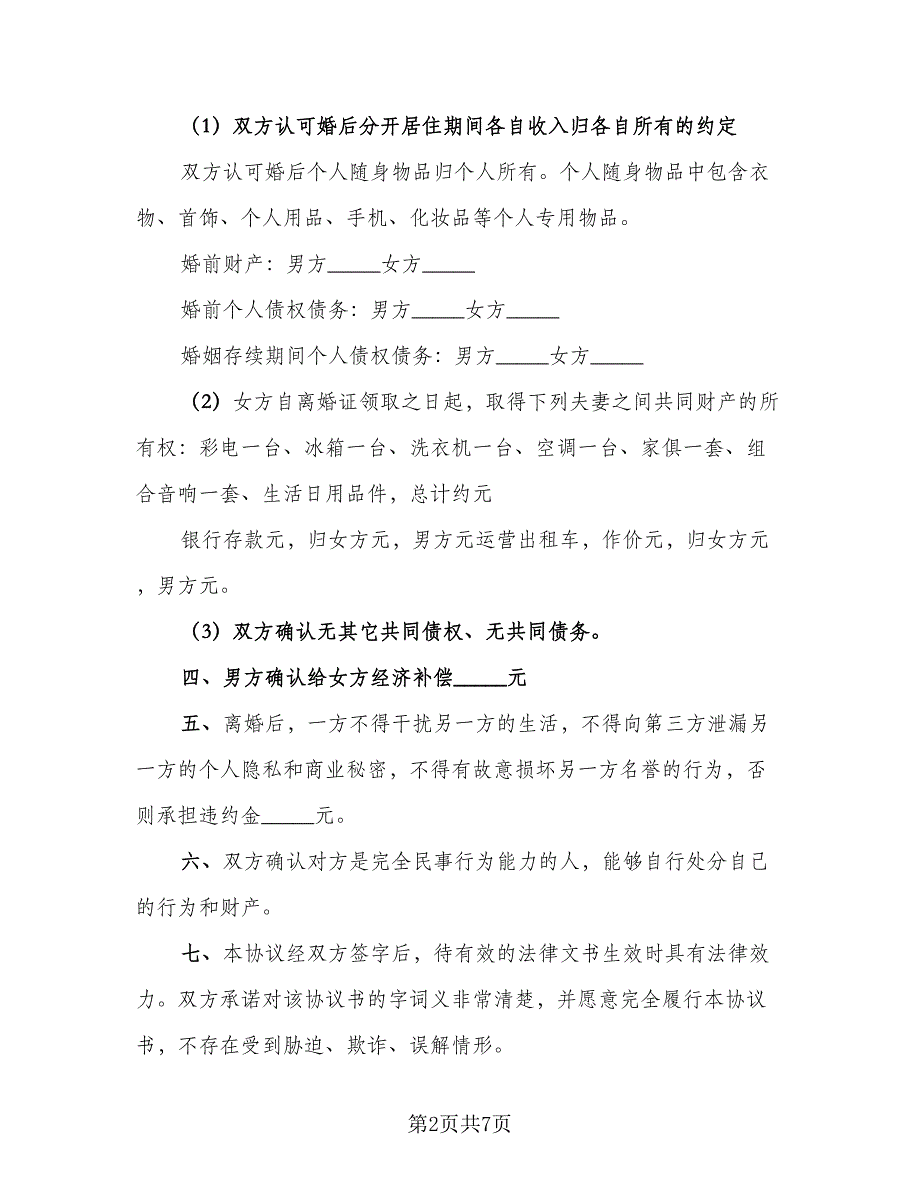 （1）双方认可婚后分开居住期间各自收入归各自所有的约定
双方认可婚后个人随身物品归个人所有。个人随身物品中包含衣
物、首饰、个人用品、手机、化妆品等个人专用物品。
婚前财产：男方_____女方_____
婚前个人债权债务：男方_____女方_____
婚姻存续期间个人债权债务：男方_____女方_____
（2）女方自离婚证领取之日起，取得下列夫妻之间共同财产的所
有权：彩电一台、冰箱一台、洗衣机一台、空调一台、家俱一套、组
合音响一套、生活日用品件，总计约元
银行存款元，归女方元，男方元运营出租车，作价元，归女方元
，男方元。
（3）双方确认无其它共同债权、无共同债务。
四、男方确认给女方经济补偿_____元
五、离婚后，一方不得干扰另一方的生活，不得向第三方泄漏另
一方的个人隐私和商业秘密，不得有故意损坏另一方名誉的行为，否
则承担违约金_____元。
六、双方确认对方是完全民事行为能力的人，能够自行处分自己
的行为和财产。
七、本协议经双方签字后，待有效的法律文书生效时具有法律效
力。双方承诺对该协议书的字词义非常清楚，并愿意完全履行本协议
书，不存在受到胁迫、欺诈、误解情形。
第2页共7页